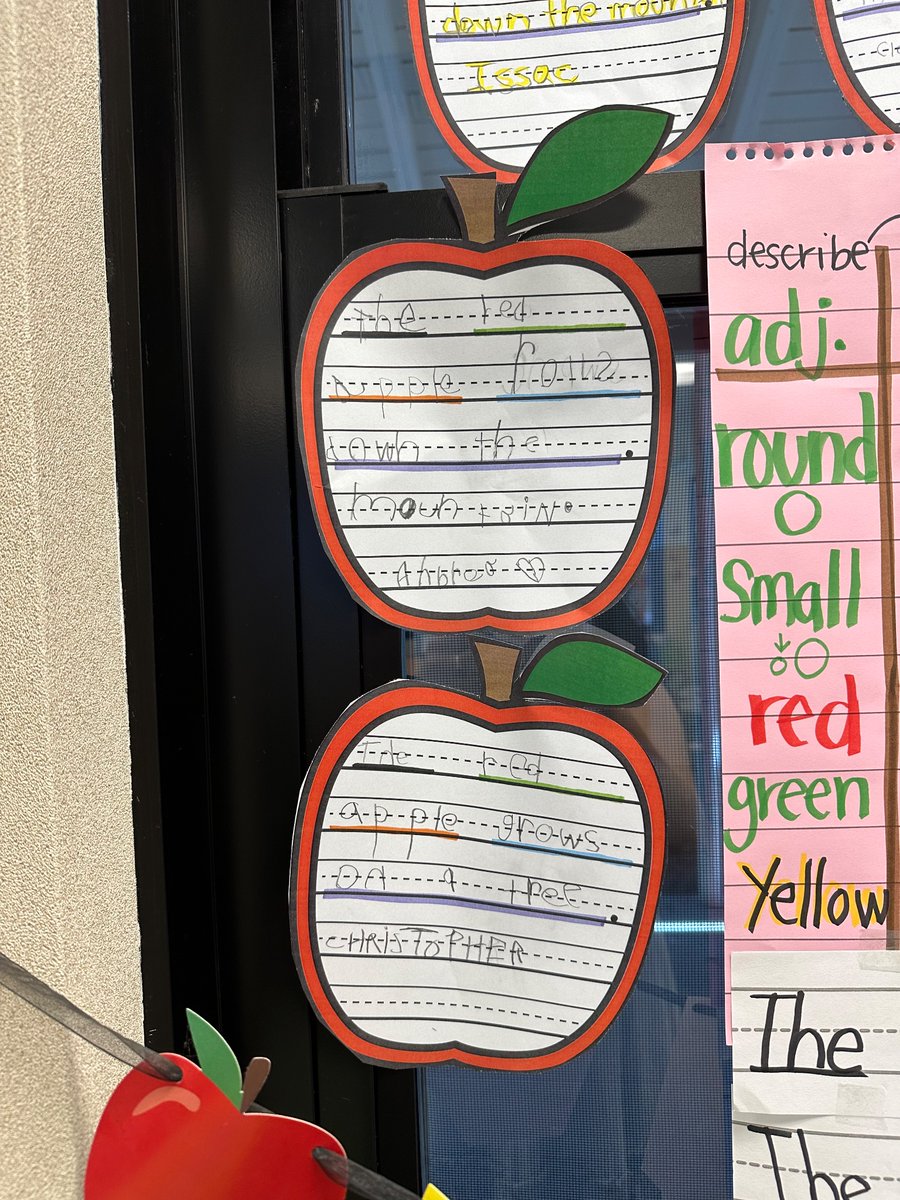 down the moun
Issac
the red
apple
down the
moun
The red
apple grows
on a tree
CHRISTOPHER
describe
adj.
round
Small
red
green
Yellow
The
The